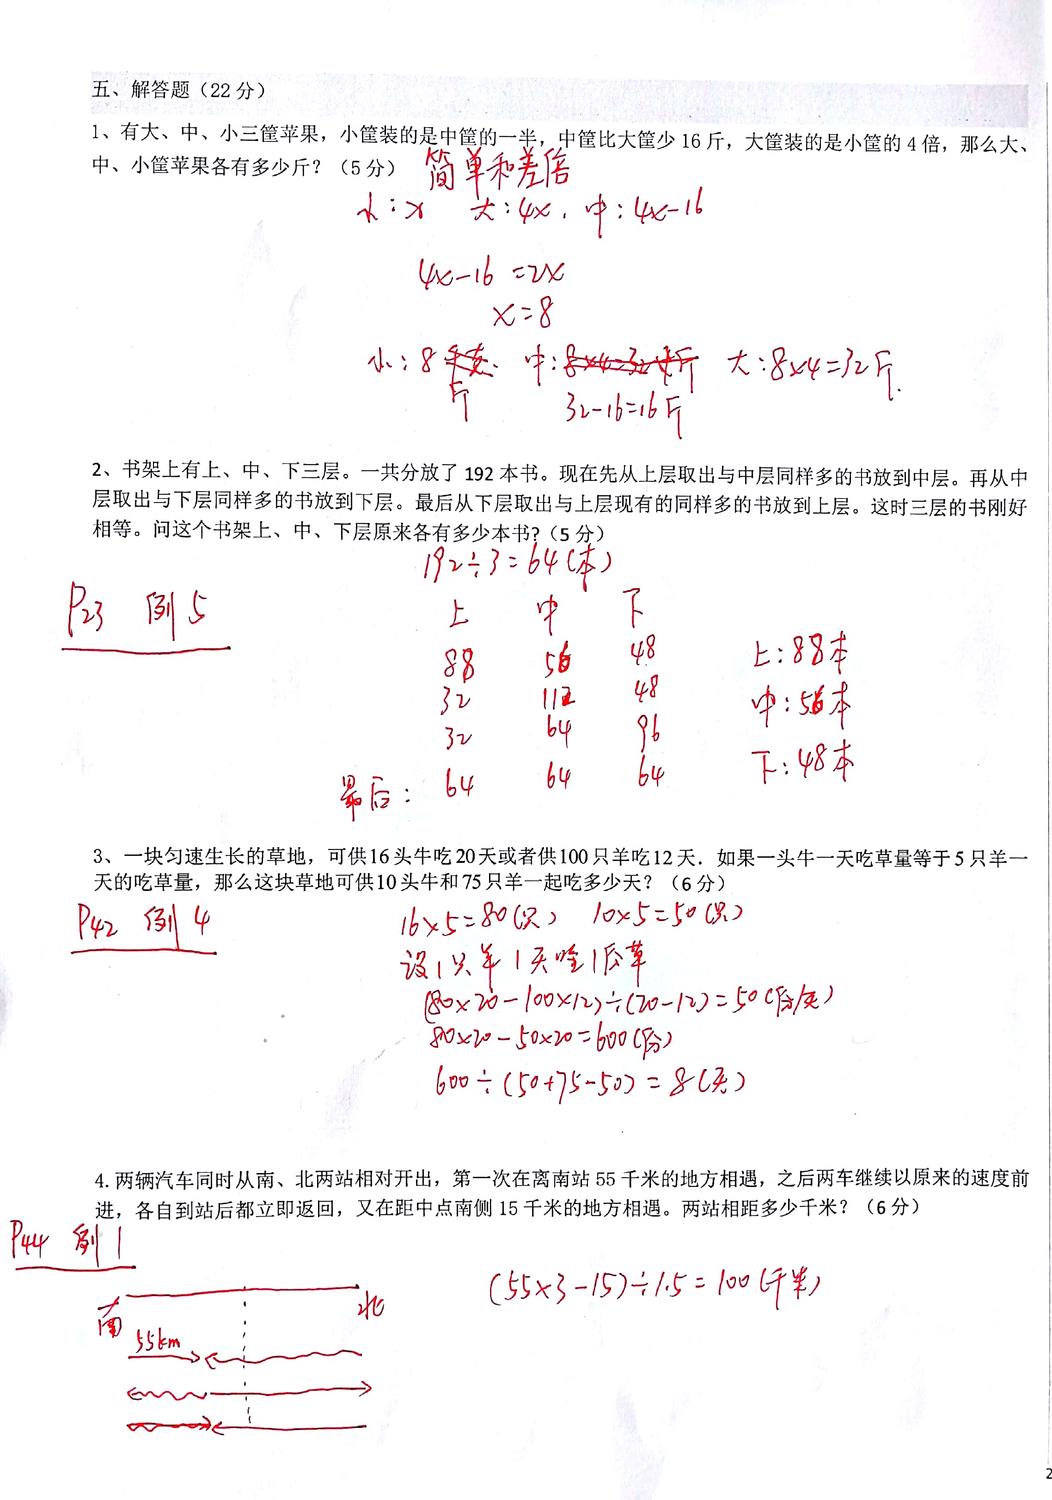 五、解答题（22 分）
1、有大、中、小三筐苹果，小筐装的是中筐的一半，中筐比大筐少 16 斤，大筐装的是小筐的 4 倍，那么大、
中、小筐苹果各有多少斤？（5 分）
简单和差倍
小：x 大：4x. 中：4x-16
4x-16=2x
x=8
小：8 斤 中：8×4=32斤 大：8×4=32斤.
32-16=16斤
2、书架上有上、中、下三层。一共分放了 192 本书。现在先从上层取出与中层同样多的书放到中层。再从中
层取出与下层同样多的书放到下层。最后从下层取出与上层现有的同样多的书放到上层。这时三层的书刚好
相等。问这个书架上、中、下层原来各有多少本书?（5 分）
192÷3=64(本)
P23 例5
上 中 下
88 56 48 上：88本
32 112 48 中：56本
32 64 96
最后： 64 64 64 下：48本
3、一块匀速生长的草地，可供16头牛吃20天或者供100只羊吃12天．如果一头牛一天吃草量等于5只羊一
天的吃草量，那么这块草地可供10头牛和75只羊一起吃多少天？（6 分）
P42 例4
16×5=80(只) 10×5=50(只)
设1只羊1天吃1份草
(80×20-100×12)÷(20-12)=50(份/天)
80×20-50×20=600(份)
600÷(50+75-50)=8(天)
4. 两辆汽车同时从南、北两站相对开出，第一次在离南站 55 千米的地方相遇，之后两车继续以原来的速度前
进，各自到站后都立即返回，又在距中点南侧 15 千米的地方相遇。两站相距多少千米？（6 分）
P44 例1
(55×3-15)÷1.5=100(千米)
南 北
55km
2